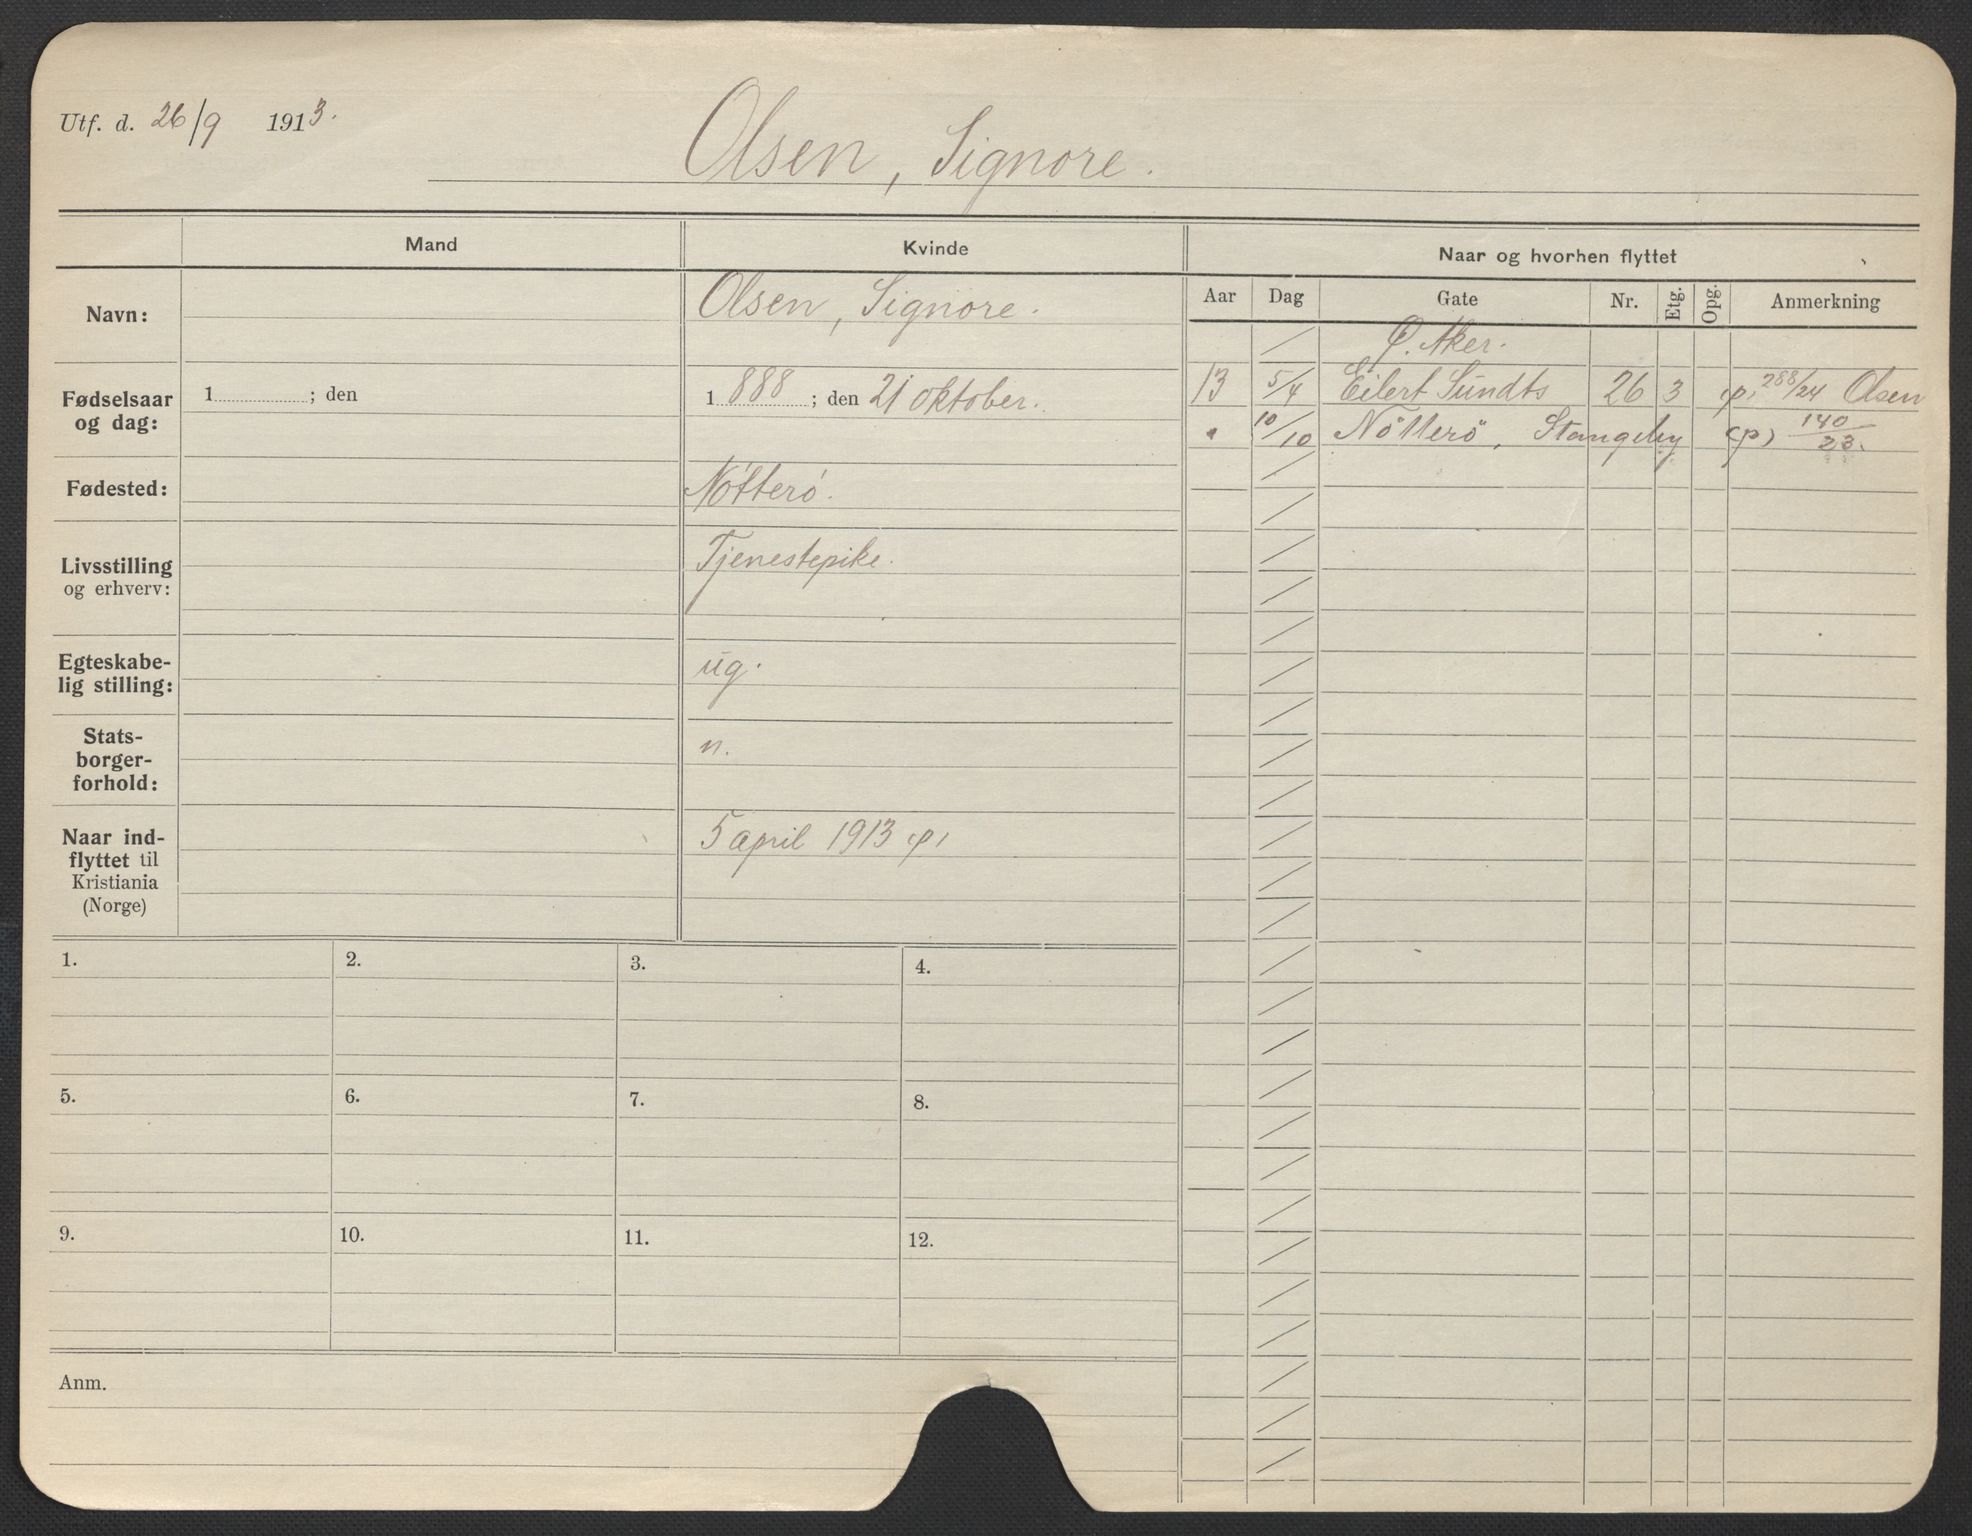 Utf. d. 26/9 1913.
Olsen, Signore.
Mand
Kvinde
Naar og hvorhen flyttet
Aar Dag Gate Nr. Etg. Opg. Anmerkning
Navn:
Olsen, Signore.
Fødselsaar
og dag:
1 ; den
1 888 ; den 21 oktober.
Fødested:
Nötterö.
Livsstilling
og erhverv:
Tjenestepike.
Egteskabe-
lig stilling:
ug.
Stats-
borger-
forhold:
n.
Naar ind-
flyttet til
Kristiania
(Norge)
5 april 1913 (p)
Ø. Aker.
13 5/4 Eilert Sundts 26 3 (p) 288/24 Olsen
" 10/10 Nötterö, Stangeby (p) 140/23.
1. 2. 3. 4.
5. 6. 7. 8.
9. 10. 11. 12.
Anm.